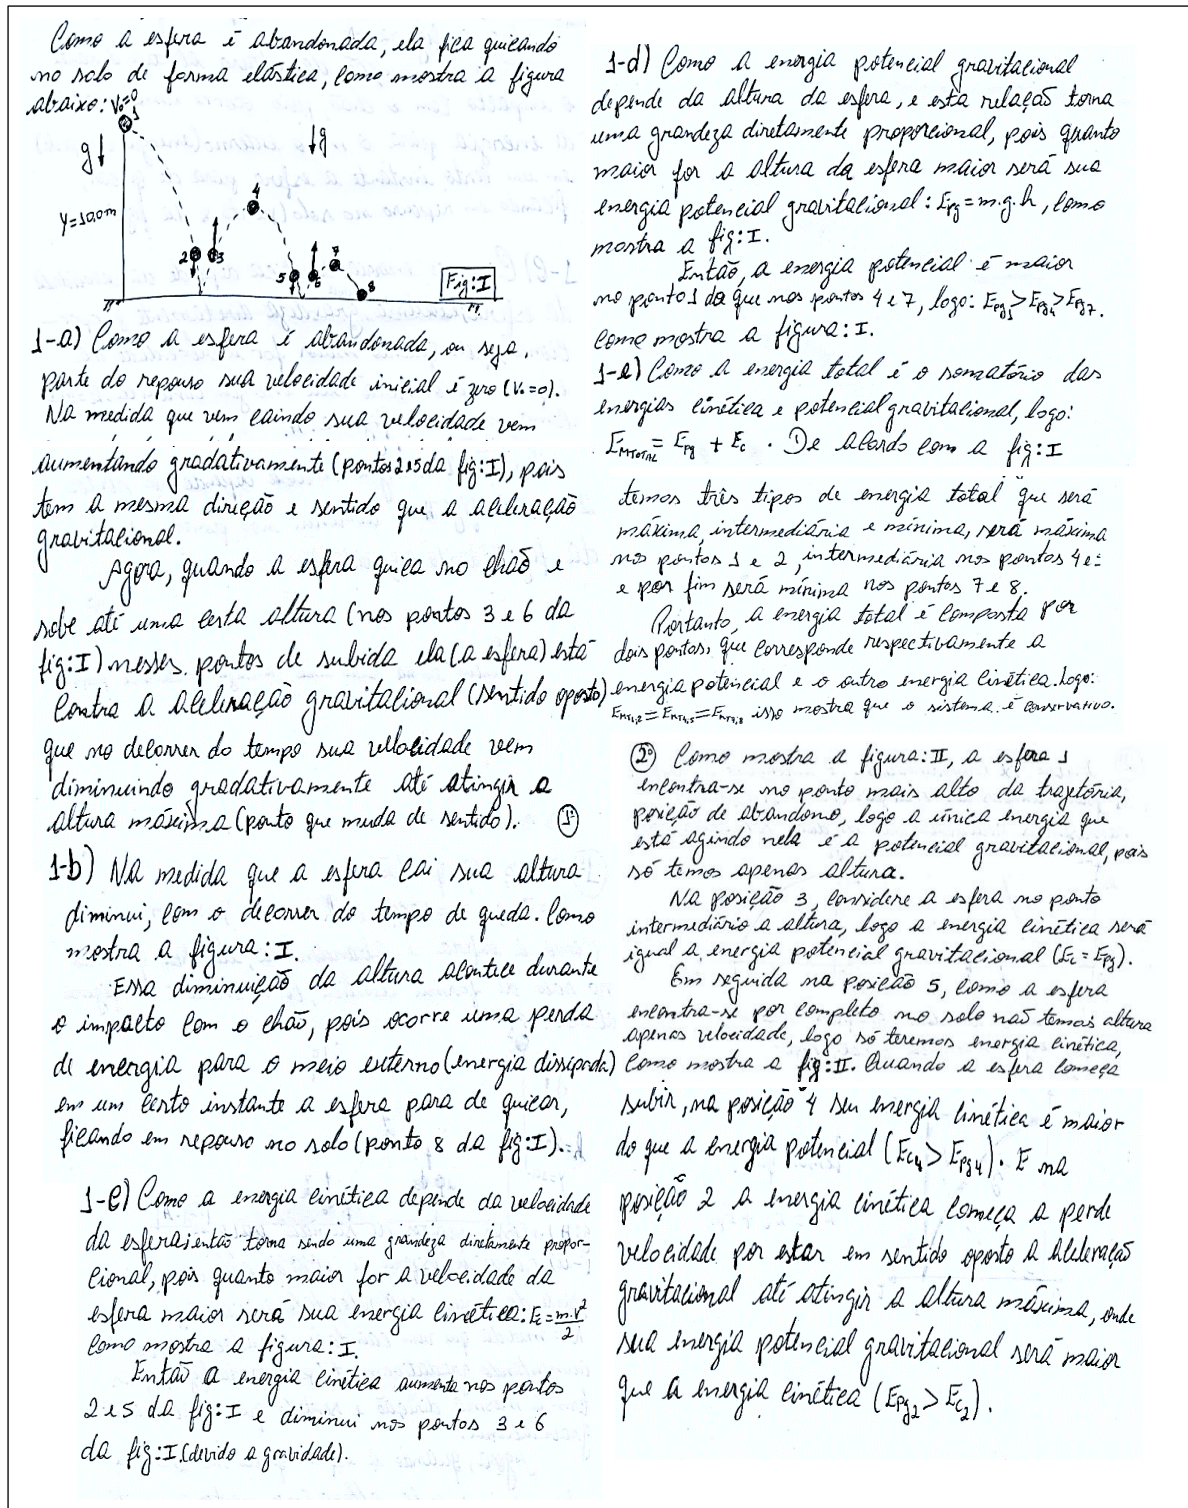 Como a esfera é abandonada, ela fica quicando
no solo de forma elástica, como mostra a figura
abaixo:
V₀=0
1
g
g
Y=10,0m
2
3
4
5
6
7
8
Fig:I
1-a) Como a esfera é abandonada, ou seja,
parte do repouso sua velocidade inicial é zero (V₀=0).
Na medida que vem caindo sua velocidade vem
aumentando gradativamente (pontos 2 e 5 da fig:I), pois
tem a mesma direção e sentido que a aceleração
gravitacional.
Agora, quando a esfera quica no chão e
sobe até uma certa altura (nos pontos 3 e 6 da
fig:I) nesses pontos de subida ela (a esfera) está
contra a aceleração gravitacional (sentido oposto)
que no decorrer do tempo sua velocidade vem
diminuindo gradativamente até atingir a
altura máxima (ponto que muda de sentido). 1º
1-b) Na medida que a esfera cai sua altura
diminui, com o decorrer do tempo de queda. Como
mostra a figura:I.
Essa diminuição da altura acontece durante
o impacto com o chão, pois ocorre uma perda
de energia para o meio externo (energia dissipada)
em um certo instante a esfera para de quicar,
ficando em repouso no solo (ponto 8 da fig:I).
1-C) Como a energia cinética depende da velocidade
da esfera, então torna sendo uma grandeza diretamente propor-
cional, pois quanto maior for a velocidade da
esfera maior será sua energia cinética: Ec=m.V²/2
como mostra a figura:I.
Então a energia cinética aumenta nos pontos
2 e 5 da fig:I e diminui nos pontos 3 e 6
da fig:I (devido a gravidade).
1-d) Como a energia potencial gravitacional
depende da altura da esfera, e esta relação torna
uma grandeza diretamente proporcional, pois quanto
maior for a altura da esfera maior será sua
energia potencial gravitacional: Epg=m.g.h, como
mostra a fig:I.
Então, a energia potencial é maior
no ponto 1 do que nos pontos 4 e 7, logo: Epg1>Epg4>Epg7.
como mostra a figura:I.
1-e) Como a energia total é o somatório das
energias cinética e potencial gravitacional, logo:
EMTOTAL = Epg + Ec. De acordo com a fig:I
temos três tipos de energia total que será
máxima, intermediária e mínima, será máxima
nos pontos 1 e 2, intermediária nos pontos 4 e
e por fim será mínima nos pontos 7 e 8.
Portanto, a energia total é composta por
dois pontos, que corresponde respectivamente a
energia potencial e o outro energia cinética. Logo:
EMT1,2=EMT4,5=EMT7,8 isso mostra que o sistema é conservativo.
2º Como mostra a figura:II, a esfera 1
encontra-se no ponto mais alto da trajetória,
posição de abandono, logo a única energia que
está agindo nela é a potencial gravitacional, pois
só temos apenas altura.
Na posição 3, considere a esfera no ponto
intermediário a altura, logo a energia cinética será
igual a energia potencial gravitacional (Ec=Epg).
Em seguida na posição 5, como a esfera
encontra-se por completo no solo não temos altura
apenas velocidade, logo só teremos energia cinética,
como mostra a fig:II. Quando a esfera começa
subir, na posição 4 seu energia cinética é maior
do que a energia potencial (Ec4>Epg4). E na
posição 2 a energia cinética começa a perde
velocidade por estar em sentido oposto a aceleração
gravitacional até atingir a altura máxima, onde
sua energia potencial gravitacional será maior
que a energia cinética (Epg2>Ec2).